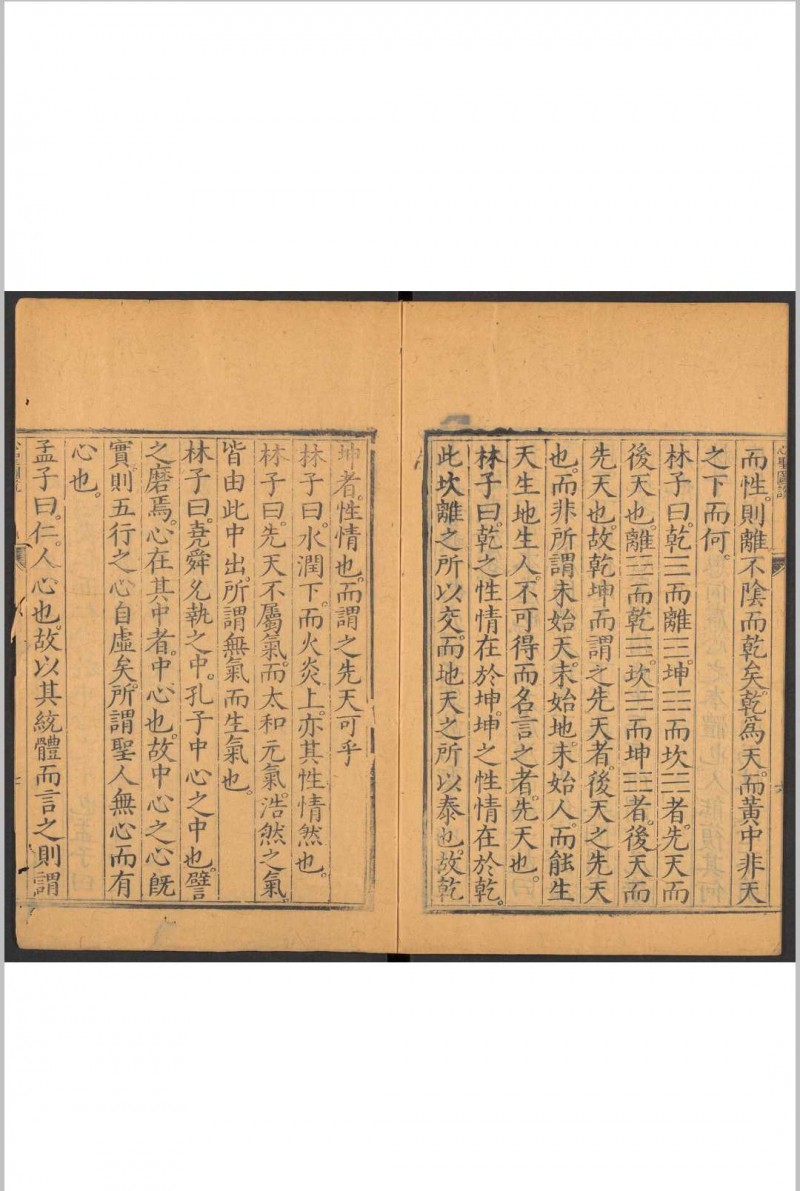 而性則離不陰而乾矣乾爲天而黃中非天
之下而何
林子曰乾☰而離☲坤☷而坎☵者先天而
後天也離☲而乾☰坎☵而坤☷者後天而
先天也故乾坤而謂之先天者後天之先天
也而非所謂未始天未始地未始人而能生
天生地生人不可得而名言之者先天也
林子曰乾之性情在於坤坤之性情在於乾
此坎離之所以交而地天之所以泰也故乾
坤者性情也而謂之先天可乎
林子曰水潤下而火炎上亦其性情然也
林子曰先天不屬氣而太和元氣浩然之氣
皆由此中出所謂無氣而生氣也
林子曰堯舜允執之中孔子中心之中也譬
之磨焉心在其中者中心也故中心之心旣
實則五行之心自虛矣所謂聖人無心而有
心也
孟子曰仁人心也故以其統體而言之則謂